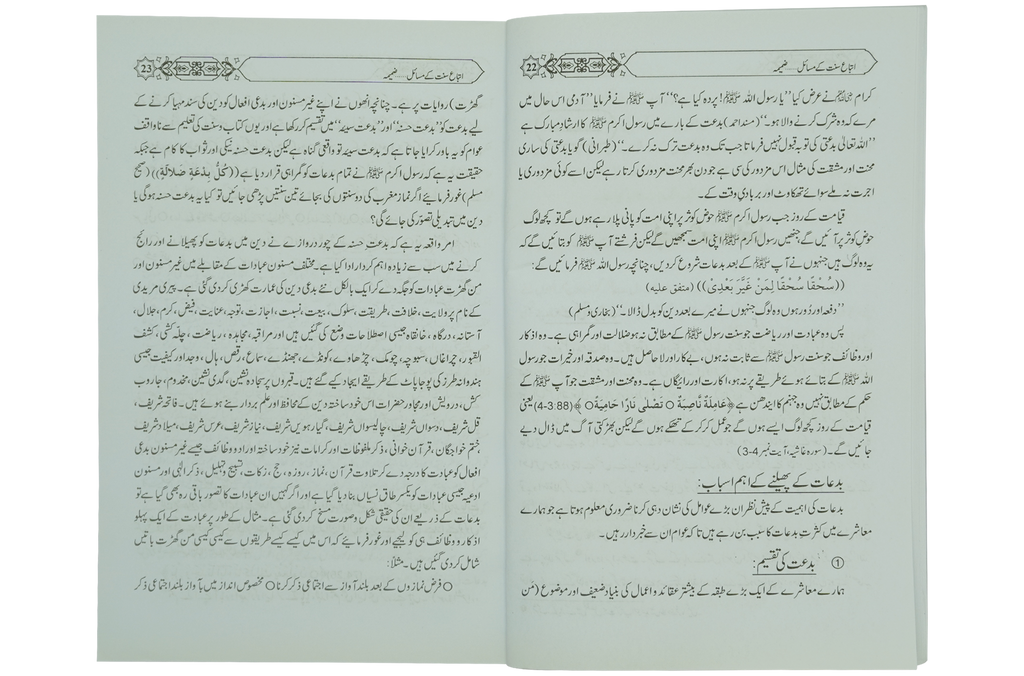 22
اتباع سنت کے مسائل.....ضمیمہ
کرام رضی اللہ عنہم نے عرض کیا ’’یا رسول اللہ ﷺ! پردہ کیا ہے؟‘‘ آپ ﷺ نے فرمایا ’’آدمی اس حال میں
مرے کہ وہ شرک کرنے والا ہو۔‘‘ (مسند احمد) بدعت کے بارے میں رسول اکرم ﷺ کا ارشاد مبارک ہے
’’اللہ تعالیٰ بدعتی کی توبہ قبول نہیں فرماتا جب تک وہ بدعت ترک نہ کرے۔‘‘ (طبرانی) گویا بدعتی کی ساری
محنت اور مشقت کی مثال اس مزدور کی سی ہے جو دن بھر محنت مزدوری کرتا رہے لیکن اسے کوئی مزدوری یا
اجرت نہ ملے سوائے تھکاوٹ اور بربادی وقت کے۔
قیامت کے روز جب رسول اکرم ﷺ حوض کوثر پر اپنی امت کو پانی پلا رہے ہوں گے تو کچھ لوگ
حوض کوثر پر آئیں گے جنہیں رسول اکرم ﷺ اپنی امت سمجھیں گے لیکن فرشتے آپ ﷺ کو بتائیں گے کہ
یہ وہ لوگ ہیں جنہوں نے آپ ﷺ کے بعد بدعات شروع کر دیں، چنانچہ رسول اللہ ﷺ فرمائیں گے:
((سُحْقًا سُحْقًا لِمَنْ غَيَّرَ بَعْدِيْ)) (متفق عليه)
’’دفعہ اور دُور ہوں وہ لوگ جنہوں نے میرے بعد دین کو بدل ڈالا۔‘‘ (بخاری ومسلم)
پس وہ عبادت اور ریاضت جو سنت رسول ﷺ کے مطابق نہ ہو ضلالت اور گمراہی ہے۔ وہ اذکار
اور وظائف جو سنت رسول ﷺ سے ثابت نہ ہوں، بے کار اور لاحاصل ہیں۔ وہ صدقہ اور خیرات جو رسول
اللہ ﷺ کے بتائے ہوئے طریقے پر نہ ہو، اکارت اور رائیگاں ہے۔ وہ محنت اور مشقت جو آپ ﷺ کے
حکم کے مطابق نہیں وہ جہنم کا ایندھن ہے ﴿عَامِلَةٌ نَّاصِبَةٌ ○ تَصْلٰى نَارًا حَامِيَةً ○﴾ (88:3-4) یعنی
قیامت کے روز کچھ لوگ ایسے ہوں گے جو عمل کر کر کے تھکے ہوں گے لیکن بھڑکتی آگ میں ڈال دیے
جائیں گے۔ (سورہ غاشیہ، آیت نمبر 4-3)
بدعات کے پھیلنے کے اہم اسباب:
بدعات کی اہمیت کے پیش نظر ان بڑے عوامل کی نشان دہی کرنا ضروری معلوم ہوتا ہے جو ہمارے
معاشرے میں کثرتِ بدعات کا سبب بن رہے ہیں تاکہ عوام ان سے خبردار رہیں۔
① بدعت کی تقسیم:
ہمارے معاشرے کے ایک بڑے طبقہ کے بیشتر عقائد و اعمال کی بنیاد ضعیف اور موضوع (من
23
اتباع سنت کے مسائل.....ضمیمہ
گھڑت) روایات پر ہے۔ چنانچہ انھوں نے اپنے غیر مسنون اور بدعی افعال کو دین کی سند مہیا کرنے کے
لیے بدعت کو ’’بدعت حسنہ‘‘ اور ’’بدعت سیئہ‘‘ میں تقسیم کر رکھا ہے اور یوں کتاب و سنت کی تعلیم سے ناواقف
عوام کو یہ باور کرایا جاتا ہے کہ بدعت سیئہ تو واقعی گناہ ہے لیکن بدعت حسنہ نیکی اور ثواب کا کام ہے جبکہ
حقیقت یہ ہے کہ رسول اکرم ﷺ نے تمام بدعات کو گمراہی قرار دیا ہے ((كُلُّ بِدْعَةٍ ضَلَالَةٌ)) (صحیح
مسلم) غور فرمائیے اگر نماز مغرب کی دو سنتوں کی بجائے تین سنتیں پڑھی جائیں تو کیا یہ بدعت حسنہ ہوگی یا
دین میں تبدیلی تصور کی جائے گی؟
امر واقعہ یہ ہے کہ بدعتِ حسنہ کے چور دروازے نے دین میں بدعات کو پھیلانے اور رائج
کرنے میں سب سے زیادہ اہم کردار ادا کیا ہے۔ مختلف مسنون عبادات کے مقابلے میں غیر مسنون اور
من گھڑت عبادات کو جگہ دے کر ایک بالکل نئے بدعی دین کی عمارت کھڑی کر دی گئی ہے۔ پیری مریدی
کے نام پر ولایت، خلافت، طریقت، سلوک، بیعت، نسبت، اجازت، توجہ، عنایت، فیض، کرم، جلال،
آستانہ، درگاہ، خانقاہ جیسی اصطلاحات وضع کی گئیں ہیں اور مراقبہ، مجاہدہ، ریاضت، چلہ کشی، کشف
القبور، چراغاں، سبوچہ، چومک، چڑھاوے، کونڈے، جھنڈے، سماع، رقص، ہال، وجد اور کیفیت جیسی
ہندوانہ طرز کی پوجا پاٹ کے طریقے ایجاد کیے گئے ہیں۔ قبروں پر سجادہ نشین، گدی نشین، مخدوم، جاروب
کش، درویش اور مجاور حضرات اس خود ساختہ دین کے محافظ اور علم بردار بنے ہوئے ہیں۔ فاتحہ شریف،
قل شریف، دسواں شریف، چالیسواں شریف، گیارہویں شریف، نیاز شریف، عرس شریف، میلاد شریف
ختم خواجگان، قرآن خوانی، ذکر ملفوظات اور کرامات نیز خود ساختہ اوراد و وظائف جیسے غیر مسنون بدعی
افعال کو عبادت کا درجہ دے کر تلاوت قرآن، نماز، روزہ، حج، زکاۃ، تسبیح و تہلیل، ذکر الٰہی اور مسنون
ادعیہ جیسی عبادات کو یکسر طاق نسیاں بنا دیا گیا ہے اور اگر کہیں ان عبادات کا تصور باقی رہ بھی گیا ہے تو
بدعات کے ذریعے ان کی حقیقی شکل وصورت مسخ کر دی گئی ہے۔ مثال کے طور پر عبادت کے ایک پہلو
اذکار و وظائف ہی کو لیجیے اور غور فرمائیے کہ اس میں کیسے کیسے طریقوں سے کیسی کیسی من گھڑت باتیں
شامل کر دی گئیں ہیں۔ مثلاً:
○ فرض نمازوں کے بعد بلند آواز سے اجتماعی ذکر کرنا ○ مخصوص انداز میں با آواز بلند اجتماعی ذکر